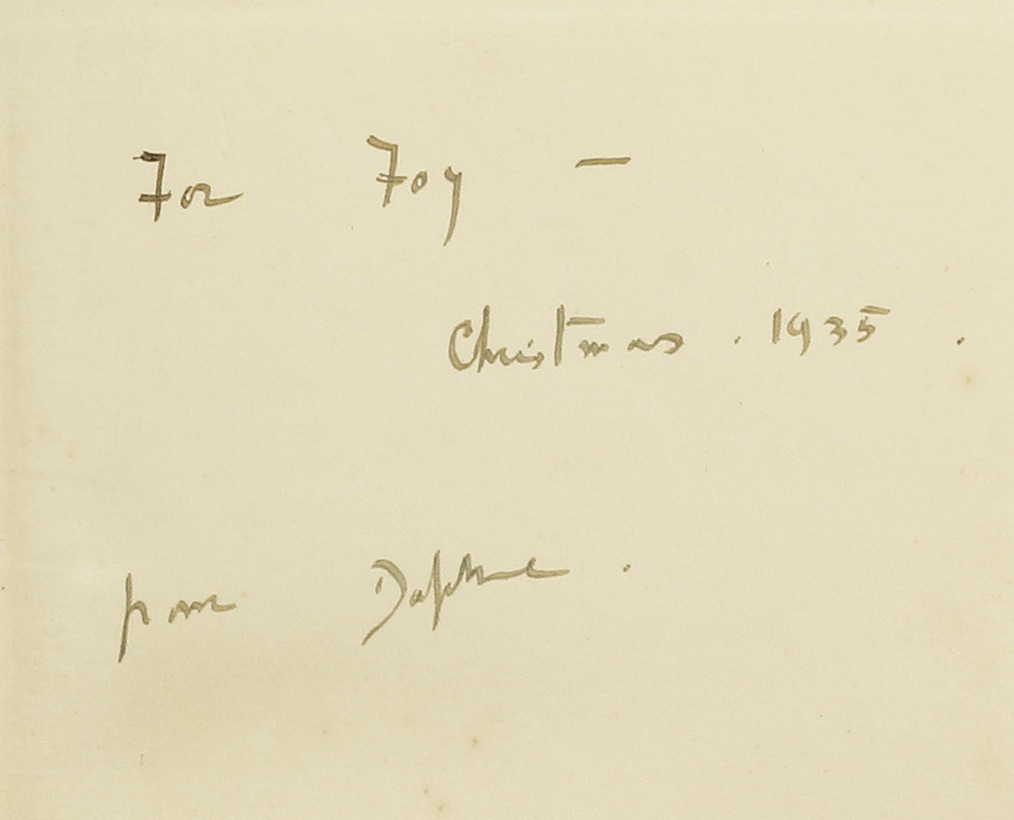 For Foy —
Christmas . 1935 .
from Daphne .